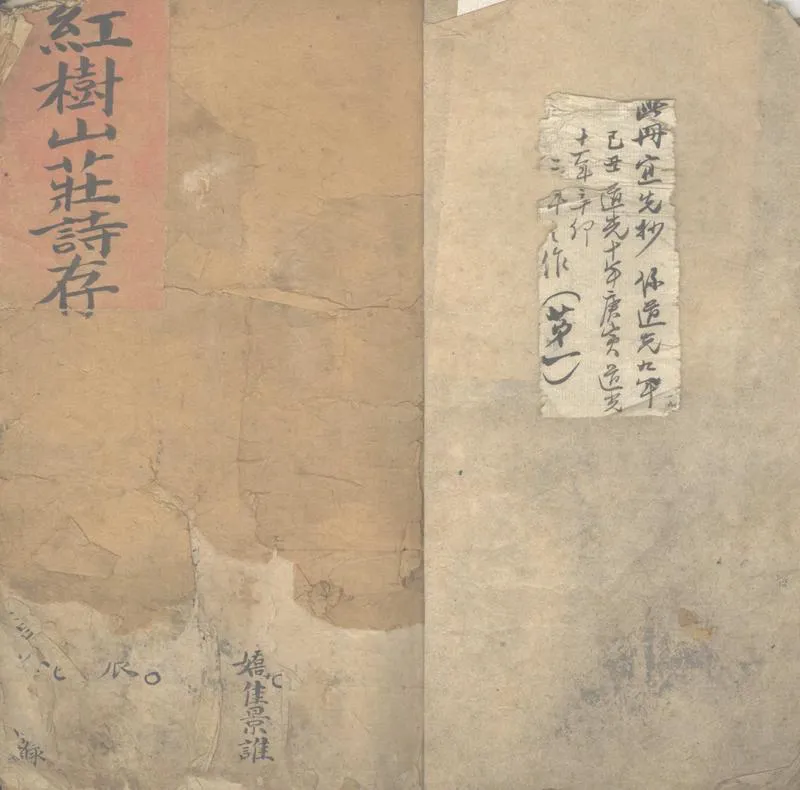 紅樹山莊詩存
此冊宜先抄 係道光九年
己丑 道光十年庚寅 道光
十一年辛卯
二年之作（第一）
嬉佳景誰
辰○